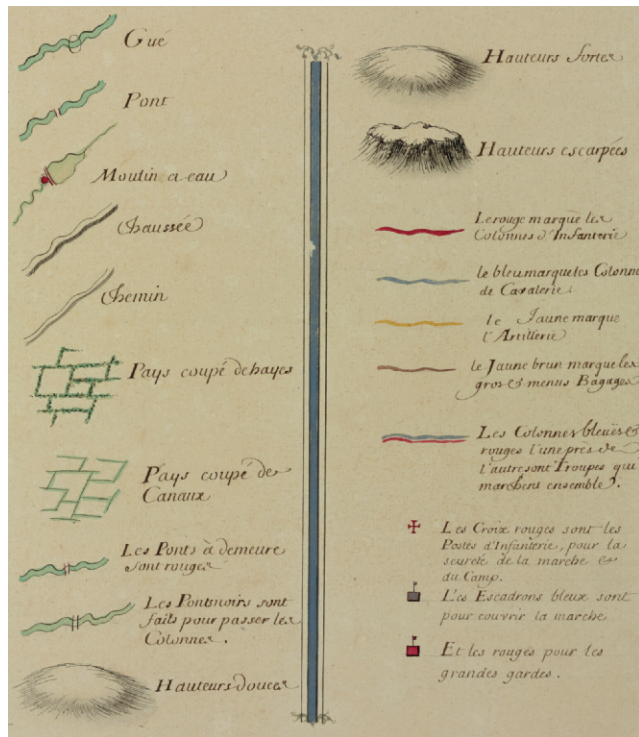 Gué
Pont
Moulin a eau
Chaussée
Chemin
Pays coupé de hayes
Pays coupé de
Canaux
Les Ponts à demeure
sont rouges
Les Ponts noirs sont
faits pour passer les
Colonnes.
Hauteurs douces
Hauteurs fortes
Hauteurs escarpées
Le rouge marque les
Colonnes d'Infanterie
le bleu marque les Colonn
de Cavalerie.
le Jaune marque
l'Artillerie
le Jaune brun marque les
gros & menus Bagages
Les Colonnes bleuës &
rouges l'une près de
l'autre sont Troupes qui
marchent ensemble.
Les Croix rouges sont les
Postes d'Infanterie, pour la
seureté de la marche &
du Camp.
Les Escadrons bleux sont
pour couvrir la marche
Et les rouges pour les
grandes gardes.